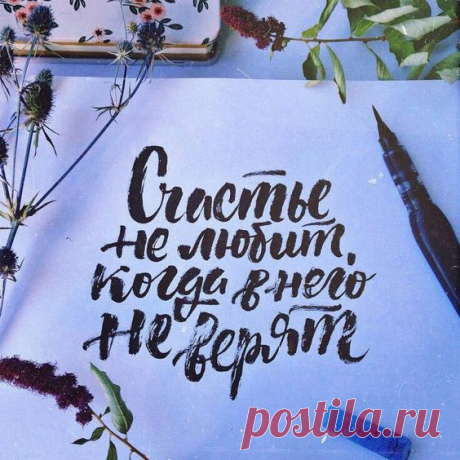 Счастье
не любит,
когда в него
не верят
postila.ru